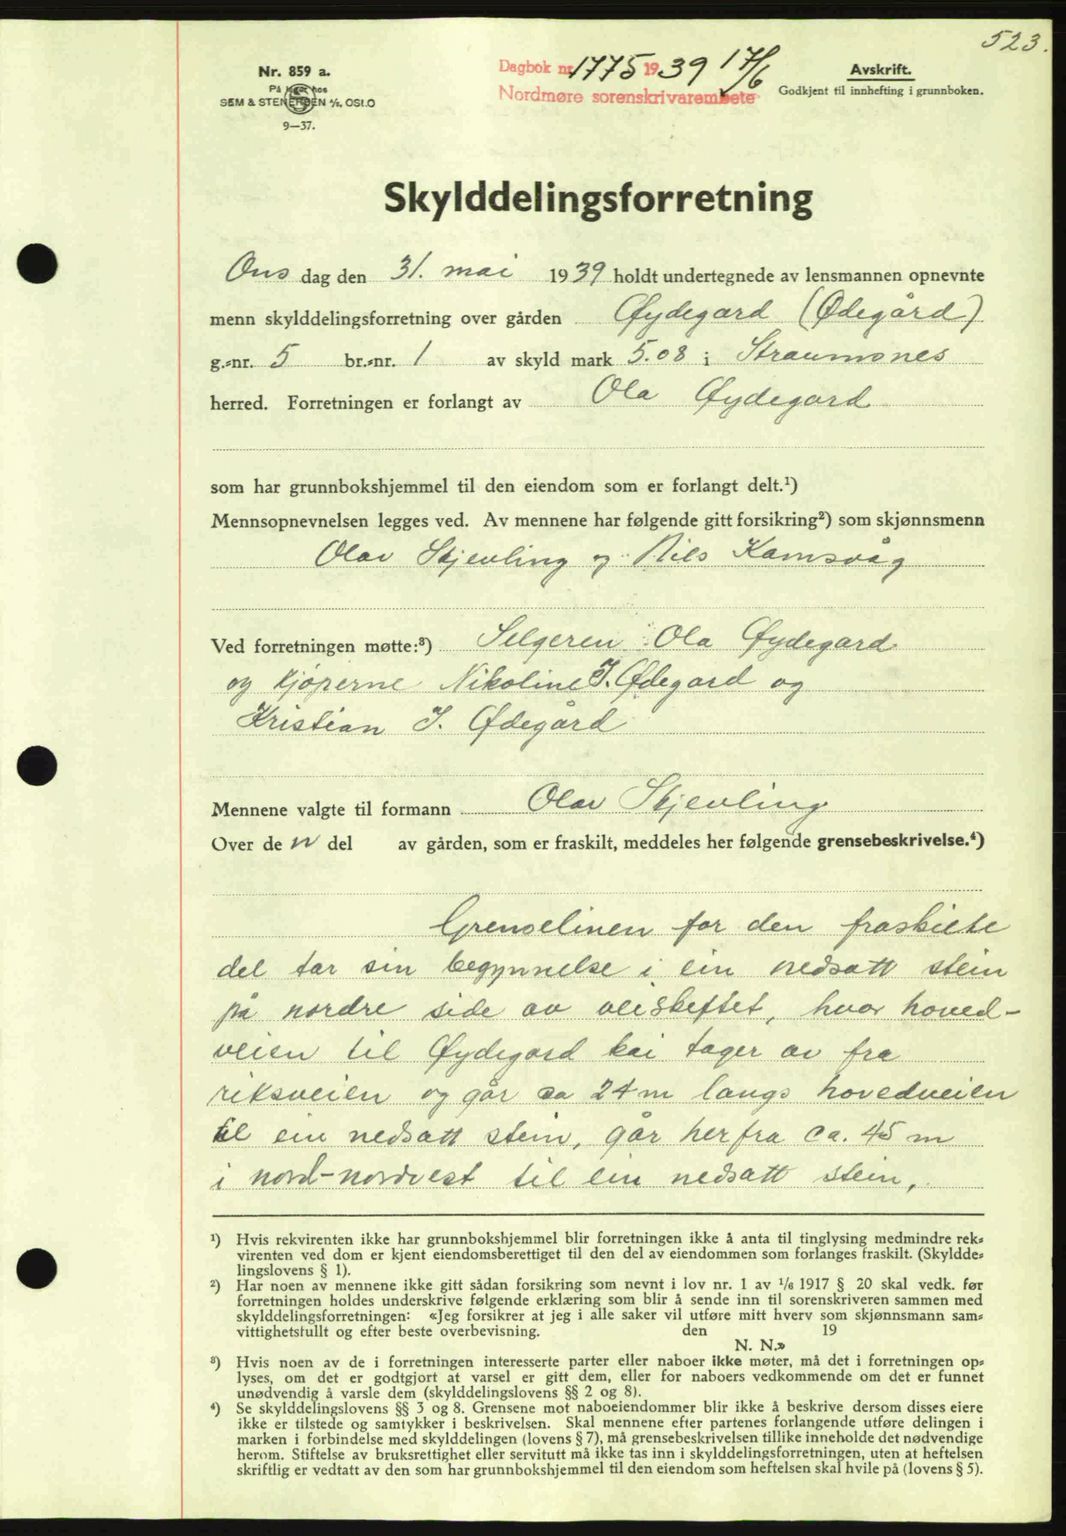 523.
Nr. 859 a.
På lager hos
SEM & STENERSEN A/S, OSLO
9—37.
Dagbok nr 1775 1939 17/6
Nordmøre sorenskrivarembete
Avskrift.
Godkjent til innhefting i grunnboken.
Skylddelingsforretning
Ons dag den 31. mai 1939 holdt undertegnede av lensmannen opnevnte
menn skylddelingsforretning over gården Øydegard (Ødegård)
g.-nr. 5 br.-nr. 1 av skyld mark 5.08 i Straumsnes
herred. Forretningen er forlangt av Ola Øydegard
som har grunnbokshjemmel til den eiendom som er forlangt delt.¹)
Mennsopnevnelsen legges ved. Av mennene har følgende gitt forsikring²) som skjønnsmenn
Olav Skjevling og Nils Kamsvåg
Ved forretningen møtte:³) Selgeren Ola Øydegard
og kjøperne Nikoline J. Ødegard og
Kristian J. Ødegård
Mennene valgte til formann Olav Skjevling
Over de n del av gården, som er fraskilt, meddeles her følgende grensebeskrivelse.⁴)
Grenselinen for den fraskilte
del tar sin begynnelse i ein nedsatt stein
på nordre side av veiskeftet, hvor hoved-
veien til Øydegard kai tager av fra
riksveien og går ca 24 m langs hovedveien
til ein nedsatt stein, går herfra ca. 45 m
i nord-nordvest til ein nedsatt stein,
¹) Hvis rekvirenten ikke har grunnbokshjemmel blir forretningen ikke å anta til tinglysing medmindre rek-
virenten ved dom er kjent eiendomsberettiget til den del av eiendommen som forlanges fraskilt. (Skyldde-
lingslovens § 1).
²) Har noen av mennene ikke gitt sådan forsikring som nevnt i lov nr. 1 av 1/6 1917 § 20 skal vedk. før
forretningen holdes underskrive følgende erklæring som blir å sende inn til sorenskriveren sammen med
skylddelingsforretningen: «Jeg forsikrer at jeg i alle saker vil utføre mitt hverv som skjønnsmann sam-
vittighetsfullt og efter beste overbevisning. den 19
N. N.»
³) Hvis noen av de i forretningen interesserte parter eller naboer ikke møter, må det i forretningen op-
lyses, om det er godtgjort at varsel er gitt dem, eller for naboers vedkommende om det er funnet
unødvendig å varsle dem (skylddelingslovens §§ 2 og 8).
⁴) Se skylddelingslovens §§ 3 og 8. Grensene mot naboeiendommer blir ikke å beskrive dersom disses eiere
ikke er tilstede og samtykker i beskrivelsen. Skal mennene efter partenes forlangende utføre delingen i
marken i forbindelse med skylddelingen (lovens § 7), må grensebeskrivelsen tillike inneholde det nødvendige
herom. Stiftelse av bruksrettighet eller servitutt må ikke tas inn i skylddelingsforretningen, uten at heftelsen
skriftlig er vedtatt av den som har grunnbokshjemmel til den eiendom som heftelsen skal hvile på (lovens § 5).